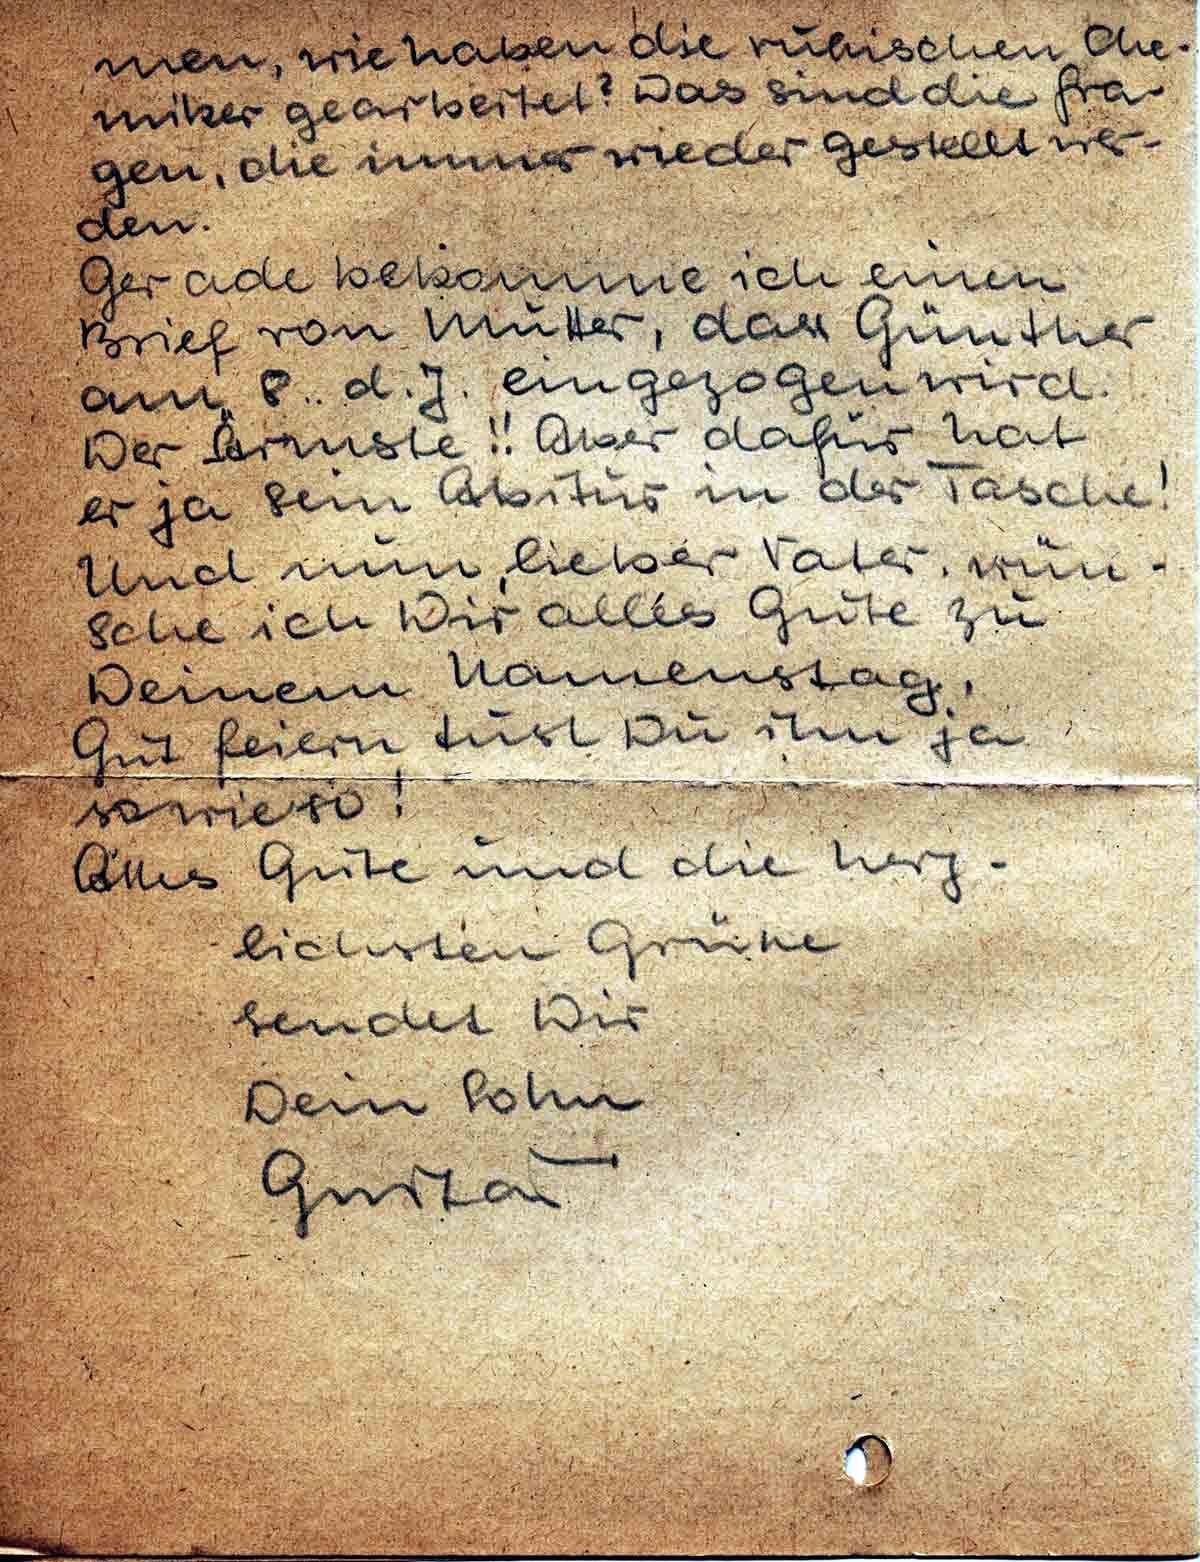 men, wie haben die rußischen Che-
miker gearbeitet? Das sind die Fra-
gen, die immer wieder gestellt wer-
den.
Gerade bekomme ich einen
Brief von Mutter, dass Günther
am 8. d. J. eingezogen wird.
Der Ärmste!! Aber dafür hat
er ja sein Abitur in der Tasche!
Und nun, lieber Vater, wün-
sche ich Dir alles Gute zu
Deinem Namenstag,
Gut feiern tust Du ihn ja
sowieso!
Alles Gute und die herz-
lichsten Grüße
sendet Dir
Dein Sohn
Gustav